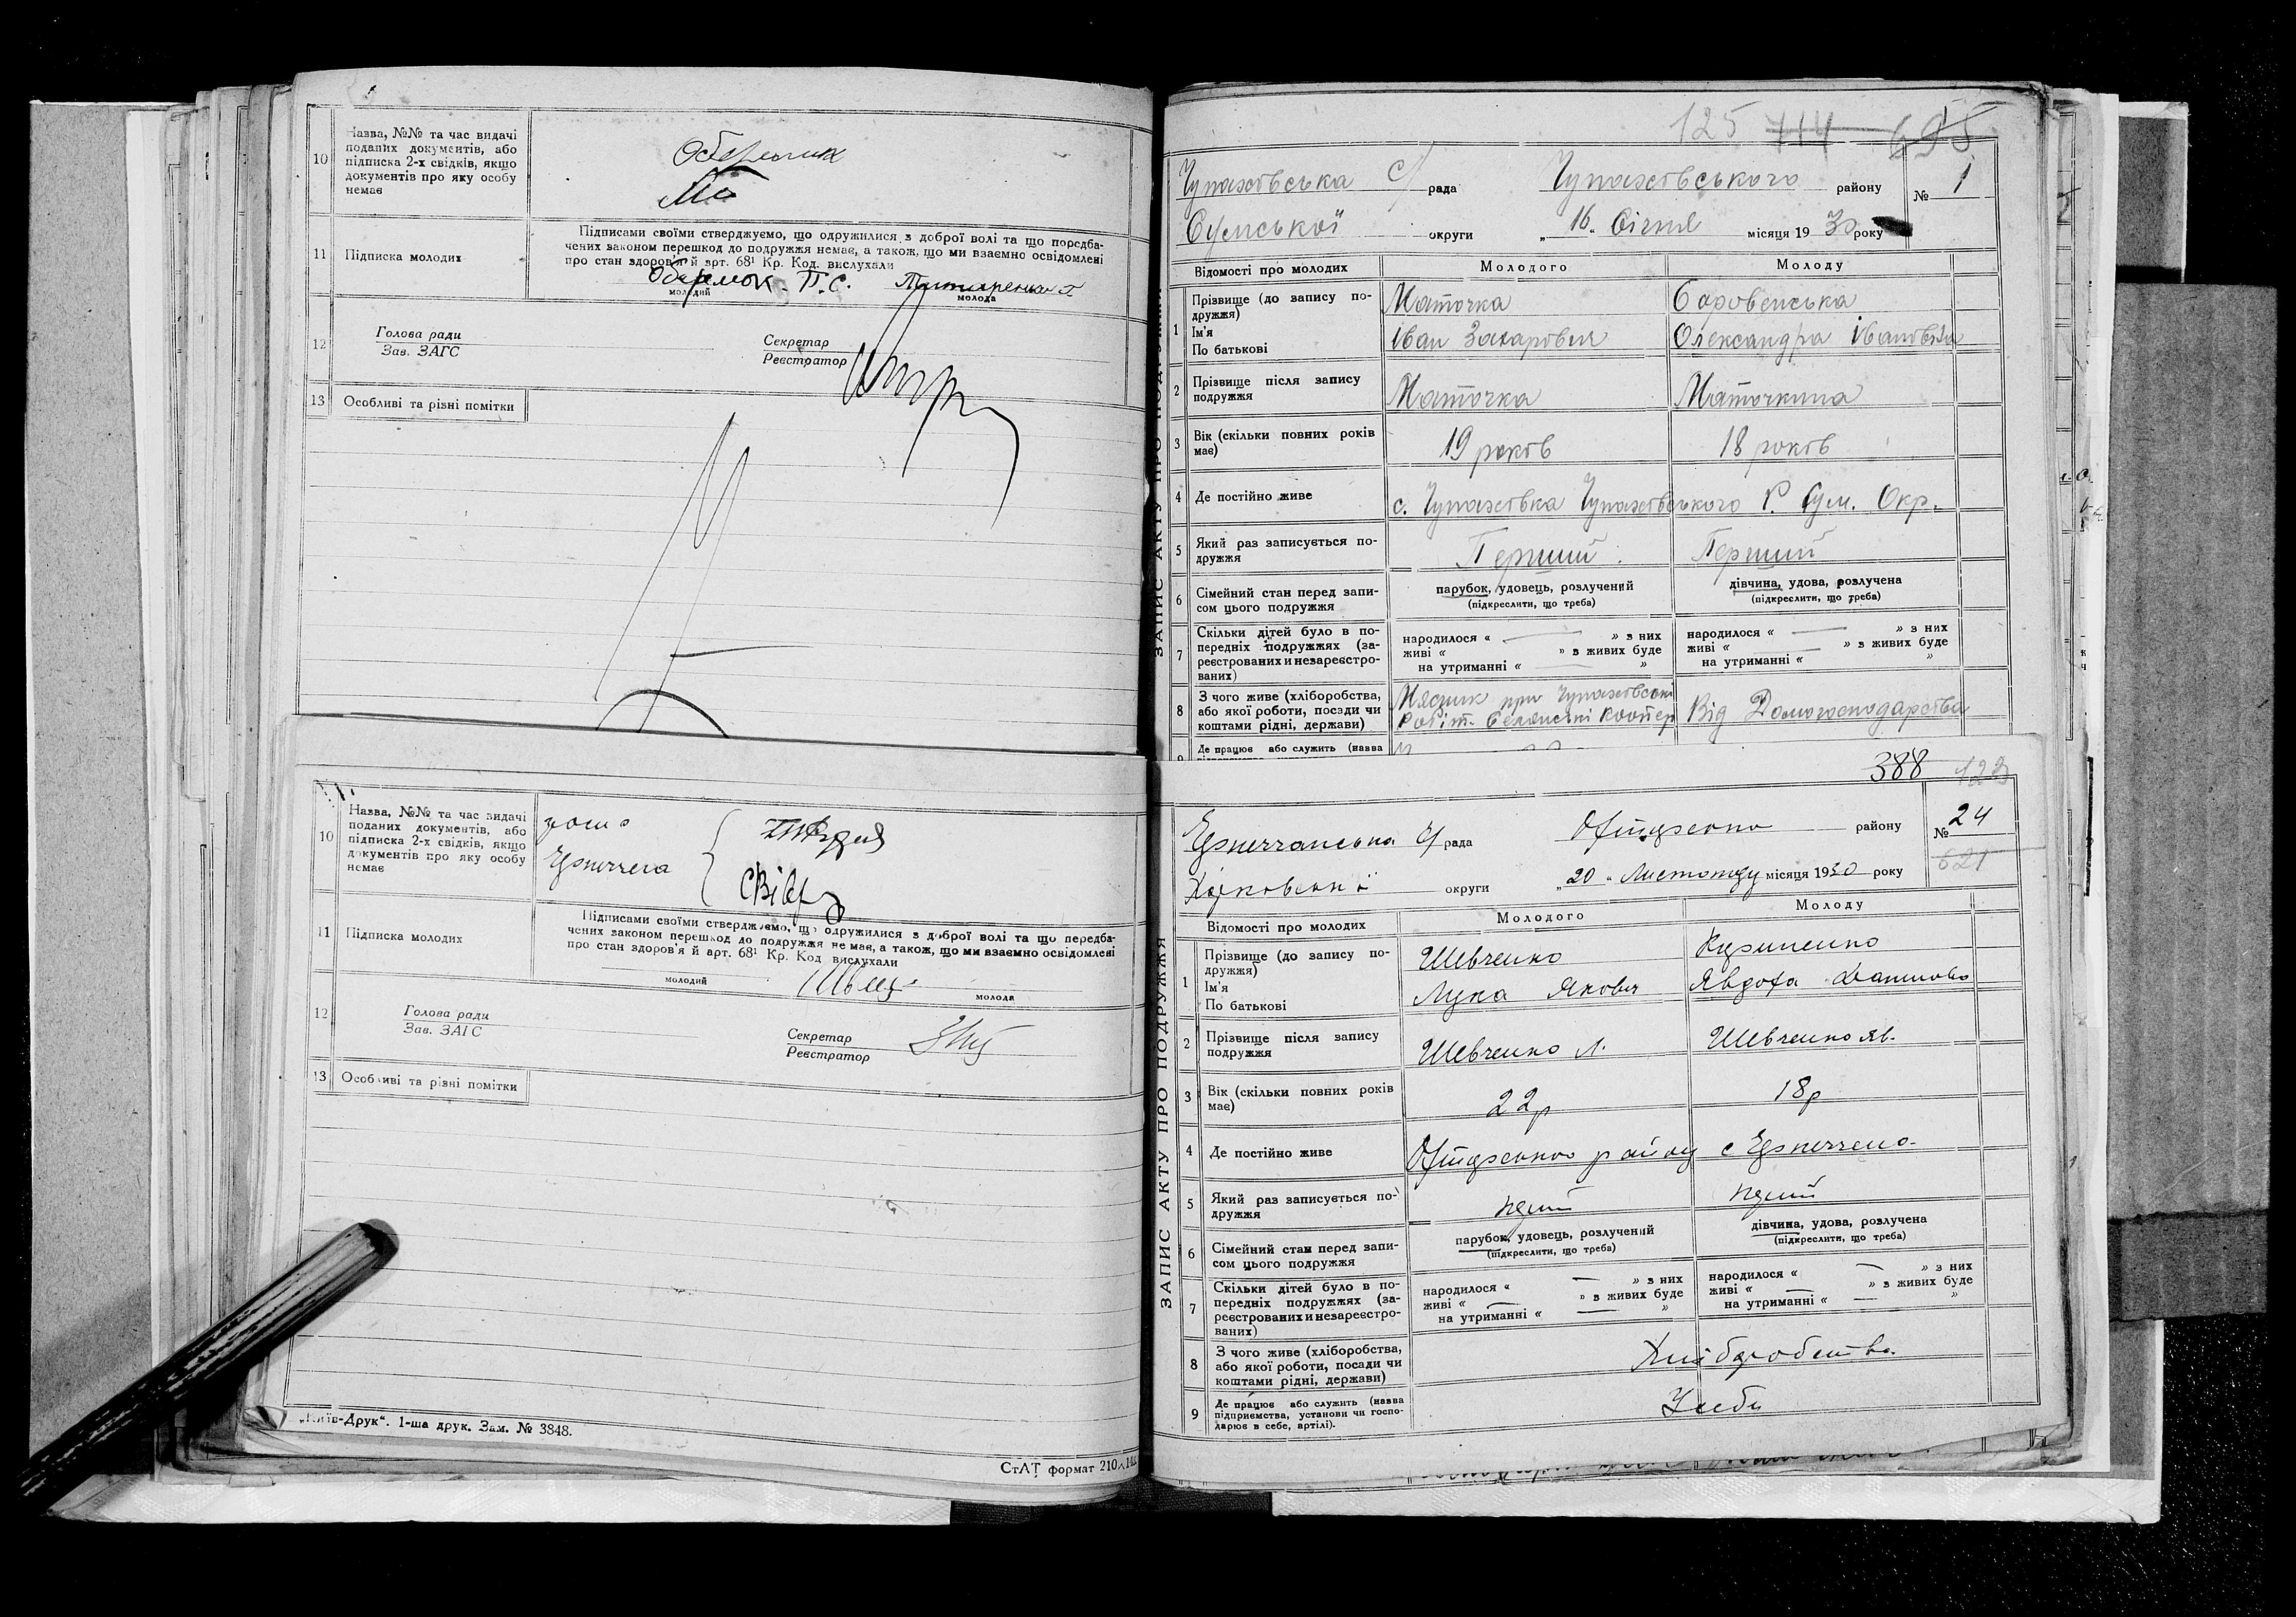 10
Назва, №№ та час видачі
поданих документів, або
підписка 2-х свідків, якщо
документів про яку особу
немає
11
Підписка молодих
Підписами своїми стверджуємо, що одружилися з доброї волі та що передба-
чених законом перешкод до подружжя немає, а також, що ми взаємно освідомлені
про стан здоров'я й арт. 68¹ Кр. Код. вислухали
П. С.
молодий
молода
12
Голова ради
Зав. ЗАГС
Секретар
Реєстратор
13
Особливі та різні помітки
10
Назва, №№ та час видачі
поданих документів, або
підписка 2-х свідків, якщо
документів про яку особу
немає
11
Підписка молодих
Підписами своїми стверджуємо, що одружилися з доброї волі та що передба-
чених законом перешкод до подружжя немає, а також, що ми взаємно освідомлені
про стан здоров'я й арт. 68¹ Кр. Код вислухали
молодий
молода
12
Голова ради
Зав. ЗАГС
Секретар
Реєстратор
13
Особливі та різні помітки
„Київ-Друк“. 1-ша друк. Зам. № 3848.
СтАТ формат 210
125 714 695
Чупахівська с/рада Чупахівського району № 1
Сумської округи „16“ Січня місяця 1930 року
ЗАПИС АКТУ ПРО ПОДРУЖЖЯ
Відомості про молодих
Молодого
Молоду
1
Прізвище (до запису по-
дружжя)
Ім'я
По батькові
Маточка
Іван Захарович
Боровенська
Олександра Івановна
2
Прізвище після запису
подружжя
Маточка
Маточкина
3
Вік (скільки повних років
має)
19 років
18 років
4
Де постійно живе
с. Чупахівка Чупахівського Р. Сум. Окр.
5
Який раз записується по-
дружжя
Перший
Перший
6
Сімейний стан перед запи-
сом цього подружжя
парубок, удовець, розлучений
(підкреслити, що треба)
дівчина, удова, розлучена
(підкреслити, що треба)
7
Скільки дітей було в по-
передніх подружжях (за-
реєстрованих и незареєстро-
ваних)
народилося « » з них
живі « » в живих буде
на утриманні « »
народилося « » з них
живі « » в живих буде
на утриманні « »
8
З чого живе (хліборобства,
або якої роботи, посади чи
коштами рідні, держави)
Мясник при Чупахівські
Робіт. Селянські коопер
Від Домогосподарства
9
Де працює або служить (назва
388 123
с/рада району № 24
621
округи „20“ Листопаду місяця 1930 року
ЗАПИС АКТУ ПРО ПОДРУЖЖЯ
Відомості про молодих
Молодого
Молоду
1
Прізвище (до запису по-
дружжя)
Ім'я
По батькові
Шевченко
Лука Якович
Явдоха
2
Прізвище після запису
подружжя
Шевченко Л.
Шевченко Яв.
3
Вік (скільки повних років
має)
22р
18р
4
Де постійно живе
району с
5
Який раз записується по-
дружжя
6
Сімейний стан перед запи-
сом цього подружжя
парубок, удовець, розлучений
(підкреслити, що треба)
дівчина, удова, розлучена
(підкреслити, що треба)
7
Скільки дітей було в по-
передніх подружжях (за-
реєстрованих и незареєстро-
ваних)
народилося « » з них
живі « » в живих буде
на утриманні « »
народилося « » з них
живі « » в живих буде
на утриманні « »
8
З чого живе (хліборобства,
або якої роботи, посади чи
коштами рідні, держави)
Хліборобства.
9
Де працює або служить (назва
підприємства, установи чи госпо-
дарює в себе, артілі).
У себе